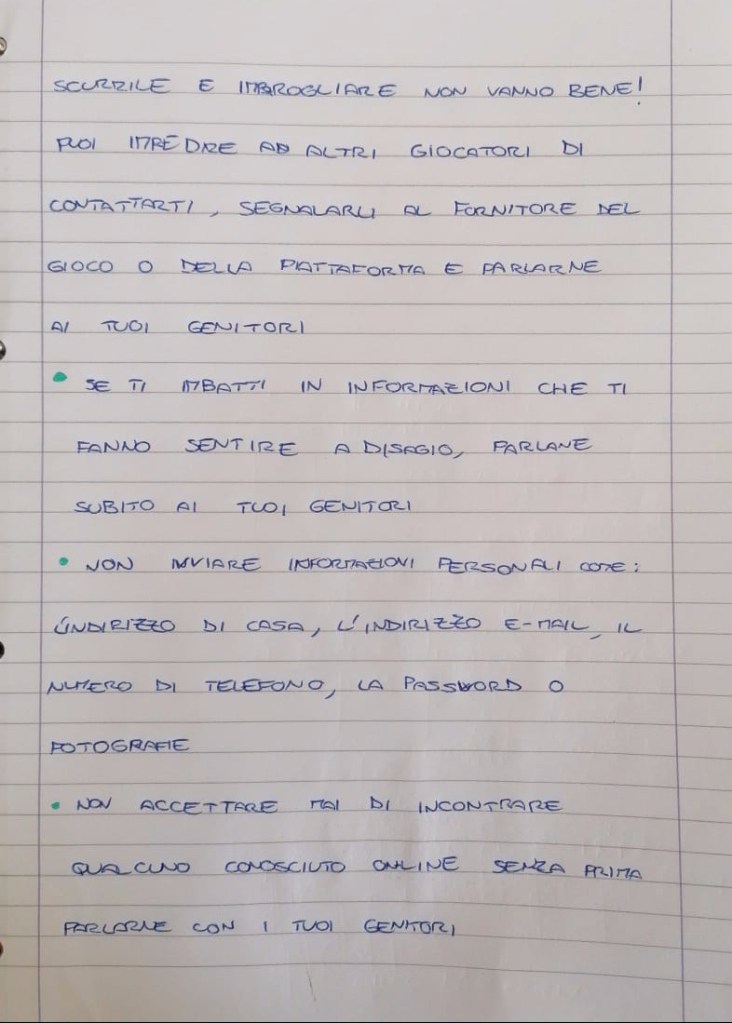 SCURRILE E IMBROGLIARE NON VANNO BENE!
PUOI IMPEDIRE AD ALTRI GIOCATORI DI
CONTATTARTI, SEGNALARLI AL FORNITORE DEL
GIOCO O DELLA PIATTAFORMA E PARLARNE
AI TUOI GENITORI
• SE TI IMBATTI IN INFORMAZIONI CHE TI
FANNO SENTIRE A DISAGIO, PARLANE
SUBITO AI TUOI GENITORI
• NON INVIARE INFORMAZIONI PERSONALI COME:
L'INDIRIZZO DI CASA, L'INDIRIZZO E-MAIL, IL
NUMERO DI TELEFONO, LA PASSWORD O
FOTOGRAFIE
• NON ACCETTARE MAI DI INCONTRARE
QUALCUNO CONOSCIUTO ONLINE SENZA PRIMA
PARLARNE CON I TUOI GENITORI